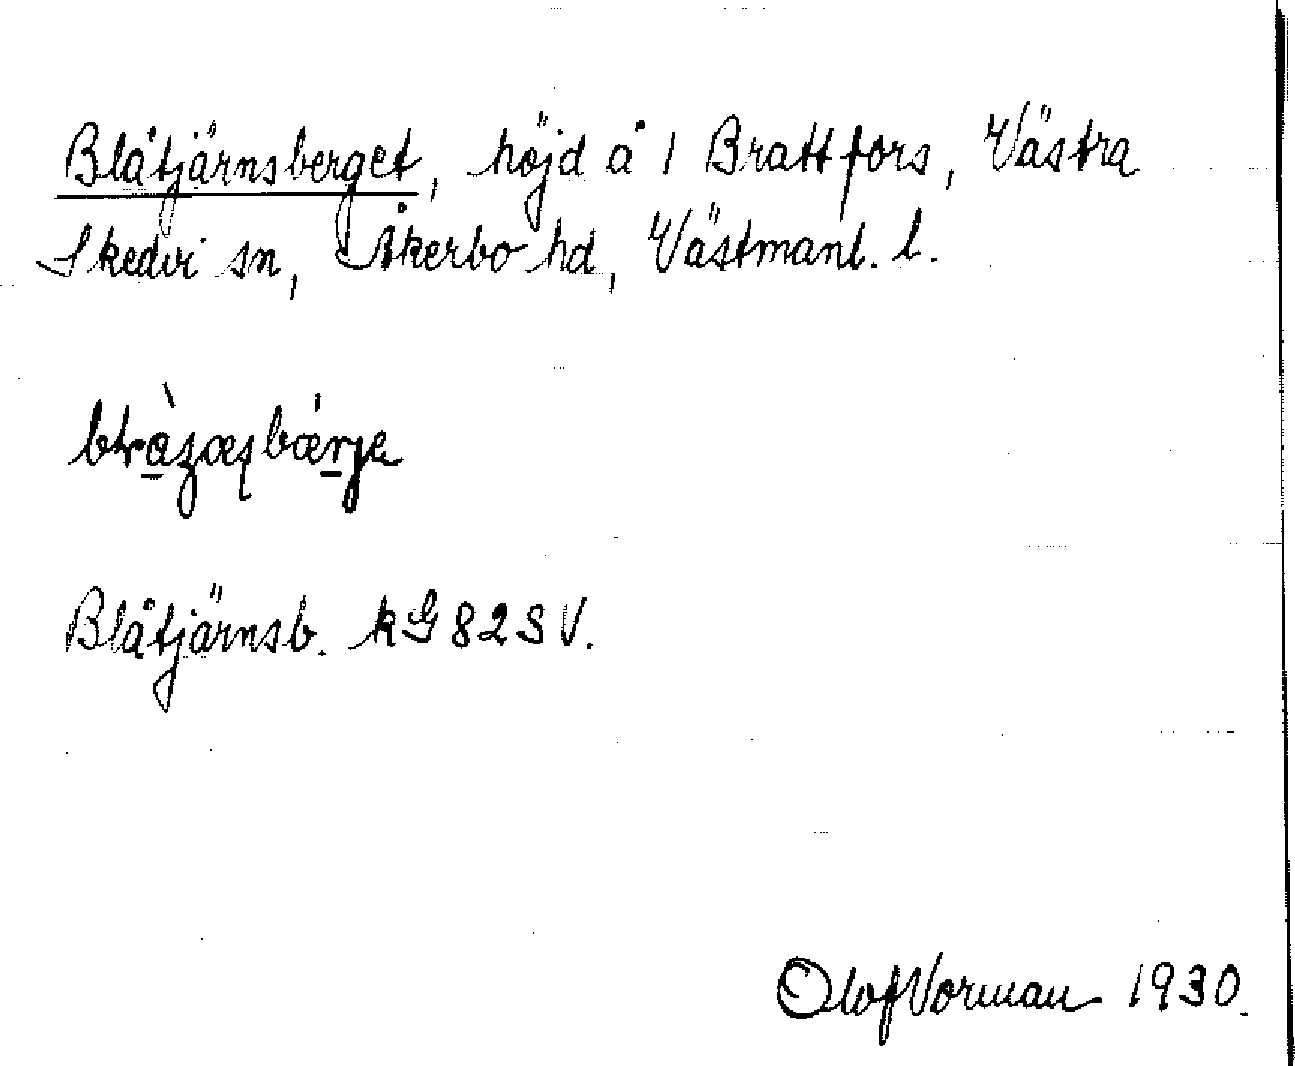 Blåtjärnsberget, höjd å 1 Brattfors, Västra
Skedvi sn, Åkerbo hd, Västmanl. l.
Blåtjärnsb. kG 82 SV.
Olof Vorman 1930.